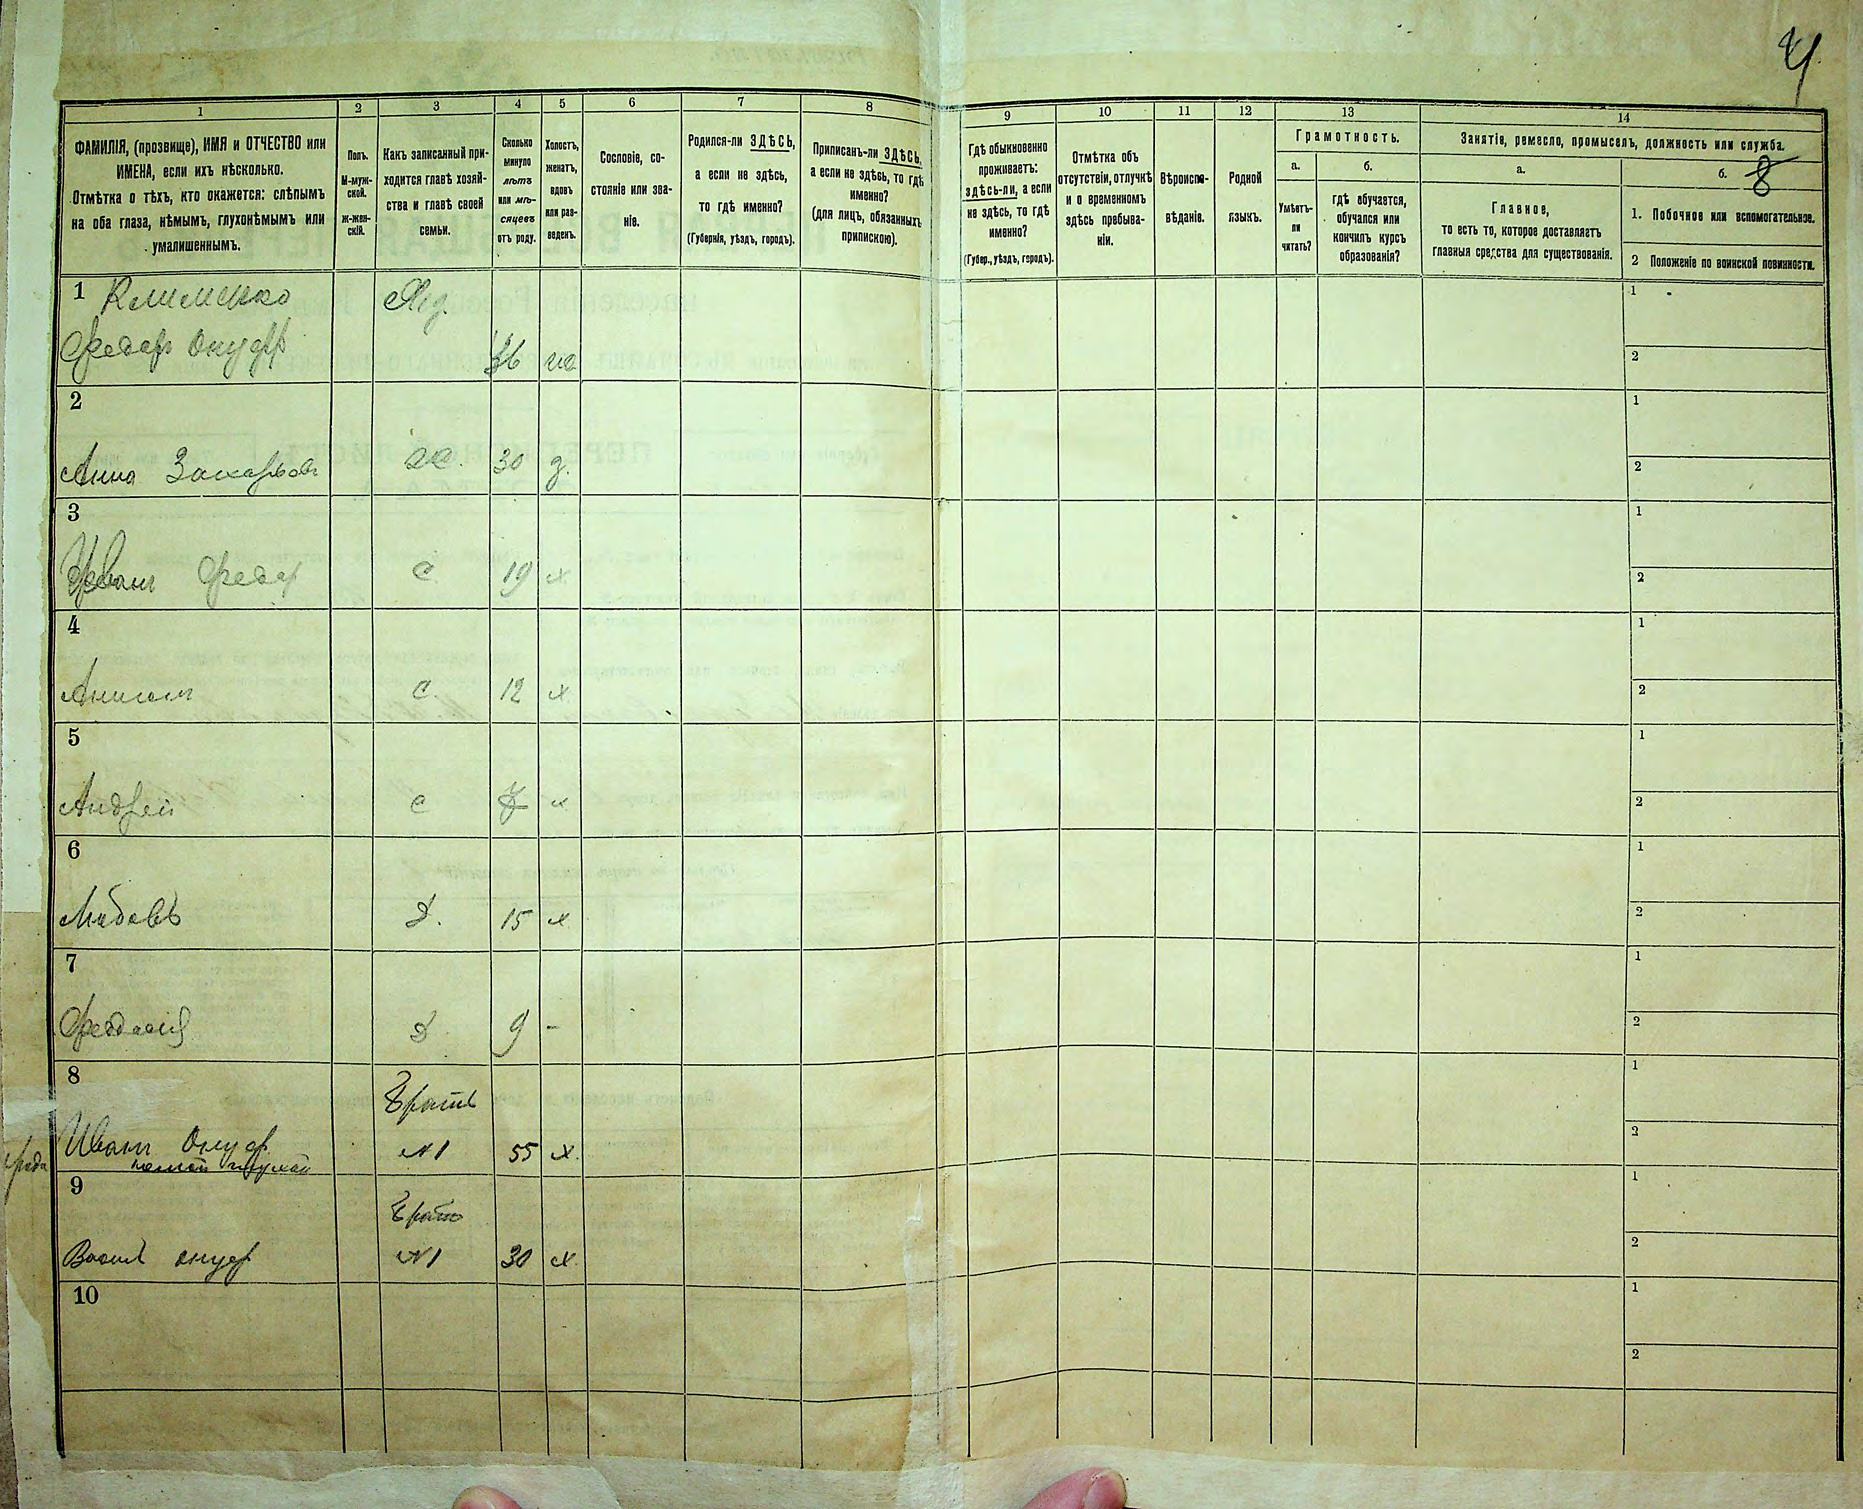 4
1
2
3
4
5
6
7
8
9
10
11
12
13
14
ФАМИЛІЯ, (прозвище), ИМЯ и ОТЧЕСТВО или
ИМЕНА, если ихъ нѣсколько.
Отмѣтка о тѣхъ, кто окажется: слѣпымъ
на оба глаза, нѣмымъ, глухонѣмымъ или
умалишеннымъ.
Полъ.
М-муж-
ской.
Ж-жен-
скій.
Какъ записанный при-
ходится главѣ хозяй-
ства и главѣ своей
семьи.
Сколько
минуло
лѣтъ
или мѣ-
сяцевъ
отъ роду.
Холостъ,
женатъ,
вдовъ
или раз-
веденъ.
Сословіе, со-
стояніе или зва-
ніе.
Родился-ли ЗДѢСЬ,
а если не здѣсь,
то гдѣ именно?
(Губернія, уѣздъ, городъ).
Приписанъ-ли ЗДѢСЬ,
а если не здѣсь, то гдѣ
именно?
(для лицъ, обязанныхъ
припискою).
Гдѣ обыкновенно
проживаетъ:
здѣсь-ли, а если
не здѣсь, то гдѣ
именно?
(Губер., уѣздъ, городъ).
Отмѣтка объ
отсутствіи, отлучкѣ
и о временномъ
здѣсь пребыва-
ніи.
Вѣроиспо-
вѣданіе.
Родной
языкъ.
Грамотность.
а.
б.
Умѣетъ-
ли
читать?
гдѣ обучается,
обучался или
кончилъ курсъ
образованія?
Занятіе, ремесло, промыселъ, должность или служба.
а.
б. 8
Главное,
то есть то, которое доставляетъ
главныя средства для существованія.
1. Побочное или вспомогательное.
2 Положеніе по воинской повинности.
1 Клименко
Федоръ Онуфр 36
1
2
2
Анна Захарьов ж. 30 з.
1
2
3
Иванъ Федор С 19 х
1
2
4
С. 12 х
1
2
5
Андрей С 7 х
1
2
6
Любовь Д. 15 х
1
2
7
Феодосія Д 9 -
1
2
8 Братъ
Иванъ Онуфр №1 55 х.
1
2
9 Братъ
Васил онуфр №1 30 х.
1
2
10
1
2